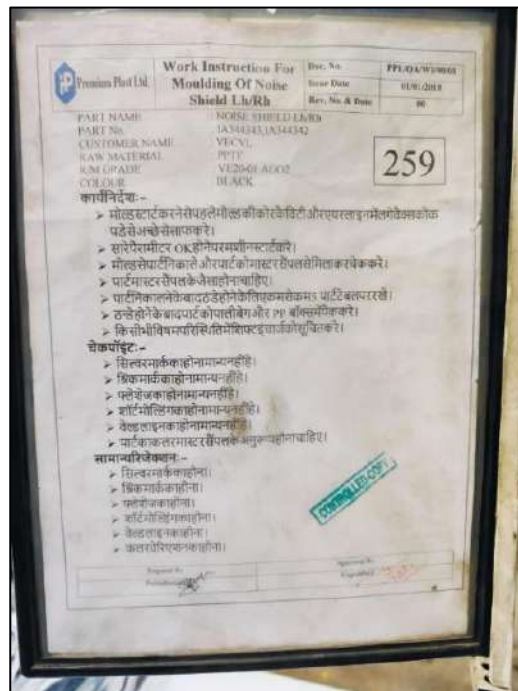 Premium Plast Ltd.
Work Instruction For
Moulding Of Noise
Shield Lh/Rh
Doc. No. PPL/QA/WI/00/01
Issue Date 01/01/2018
Rev. No. & Date 00
PART NAME : NOISE SHIELD Lh/Rh
PART No. : IA344343,IA344342
CUSTOMER NAME : VECVL
RAW MATERIAL
R/M GRADE
COLOUR : BLACK
259
कार्यनिर्देशः-
➢ मोल्डस्टार्टकरनेसेपहलेमोल्डकीकोरकेविटीऔरएयरलाइनमेंलगेवैक्सकोक
पडेसेअच्छेसेसाफकरे।
➢ सारेपैरामीटर OKहोनेपरमशीनस्टार्टकरे।
➢ मोल्डसेपार्टनिकालेऔरपार्टकोमास्टरसैंपलसेमिलाकरचेककरे।
➢ पार्टमास्टरसैंपलकेजैसाहोनाचाहिए।
➢ पार्टनिकालनेकेबादठंडेहोनेकेलिएकमसेकम3 पार्टटेबलपररखे।
➢ ठन्डेहोनेकेबादपार्टकोपालीबेगऔर PP बॉक्समेंपैककरे।
➢ किसीभीविषमपरिस्थितिमेंशिफ्टइंचार्जकोसूचितकरे।
चेकपॉइंटः-
➢ सिल्वरमार्ककाहोनामान्यनहींहै।
➢ श्रिंकमार्ककाहोनामान्यनहींहै।
➢ फ्लेशेजकाहोनामान्यनहींहै।
➢ शॉर्टमोल्डिंगकाहोनामान्यनहींहै।
➢ वेल्डलाइनकाहोनामान्यनहींहै।
➢ पार्टकाकलरमास्टरसैंपलकेअनुरूपहोनाचाहिए।
सामान्यरिजेक्शनः-
➢ सिल्वरमार्ककाहोना।
➢ श्रिंकमार्ककाहोना।
➢ फ्लेशेजकाहोना।
➢ शॉर्टमोल्डिंगकाहोना।
➢ वेल्डलाइनकाहोना।
➢ कलरवेरिएशनकाहोना।
CONTROLLED COPY
Prepared By
Approved By